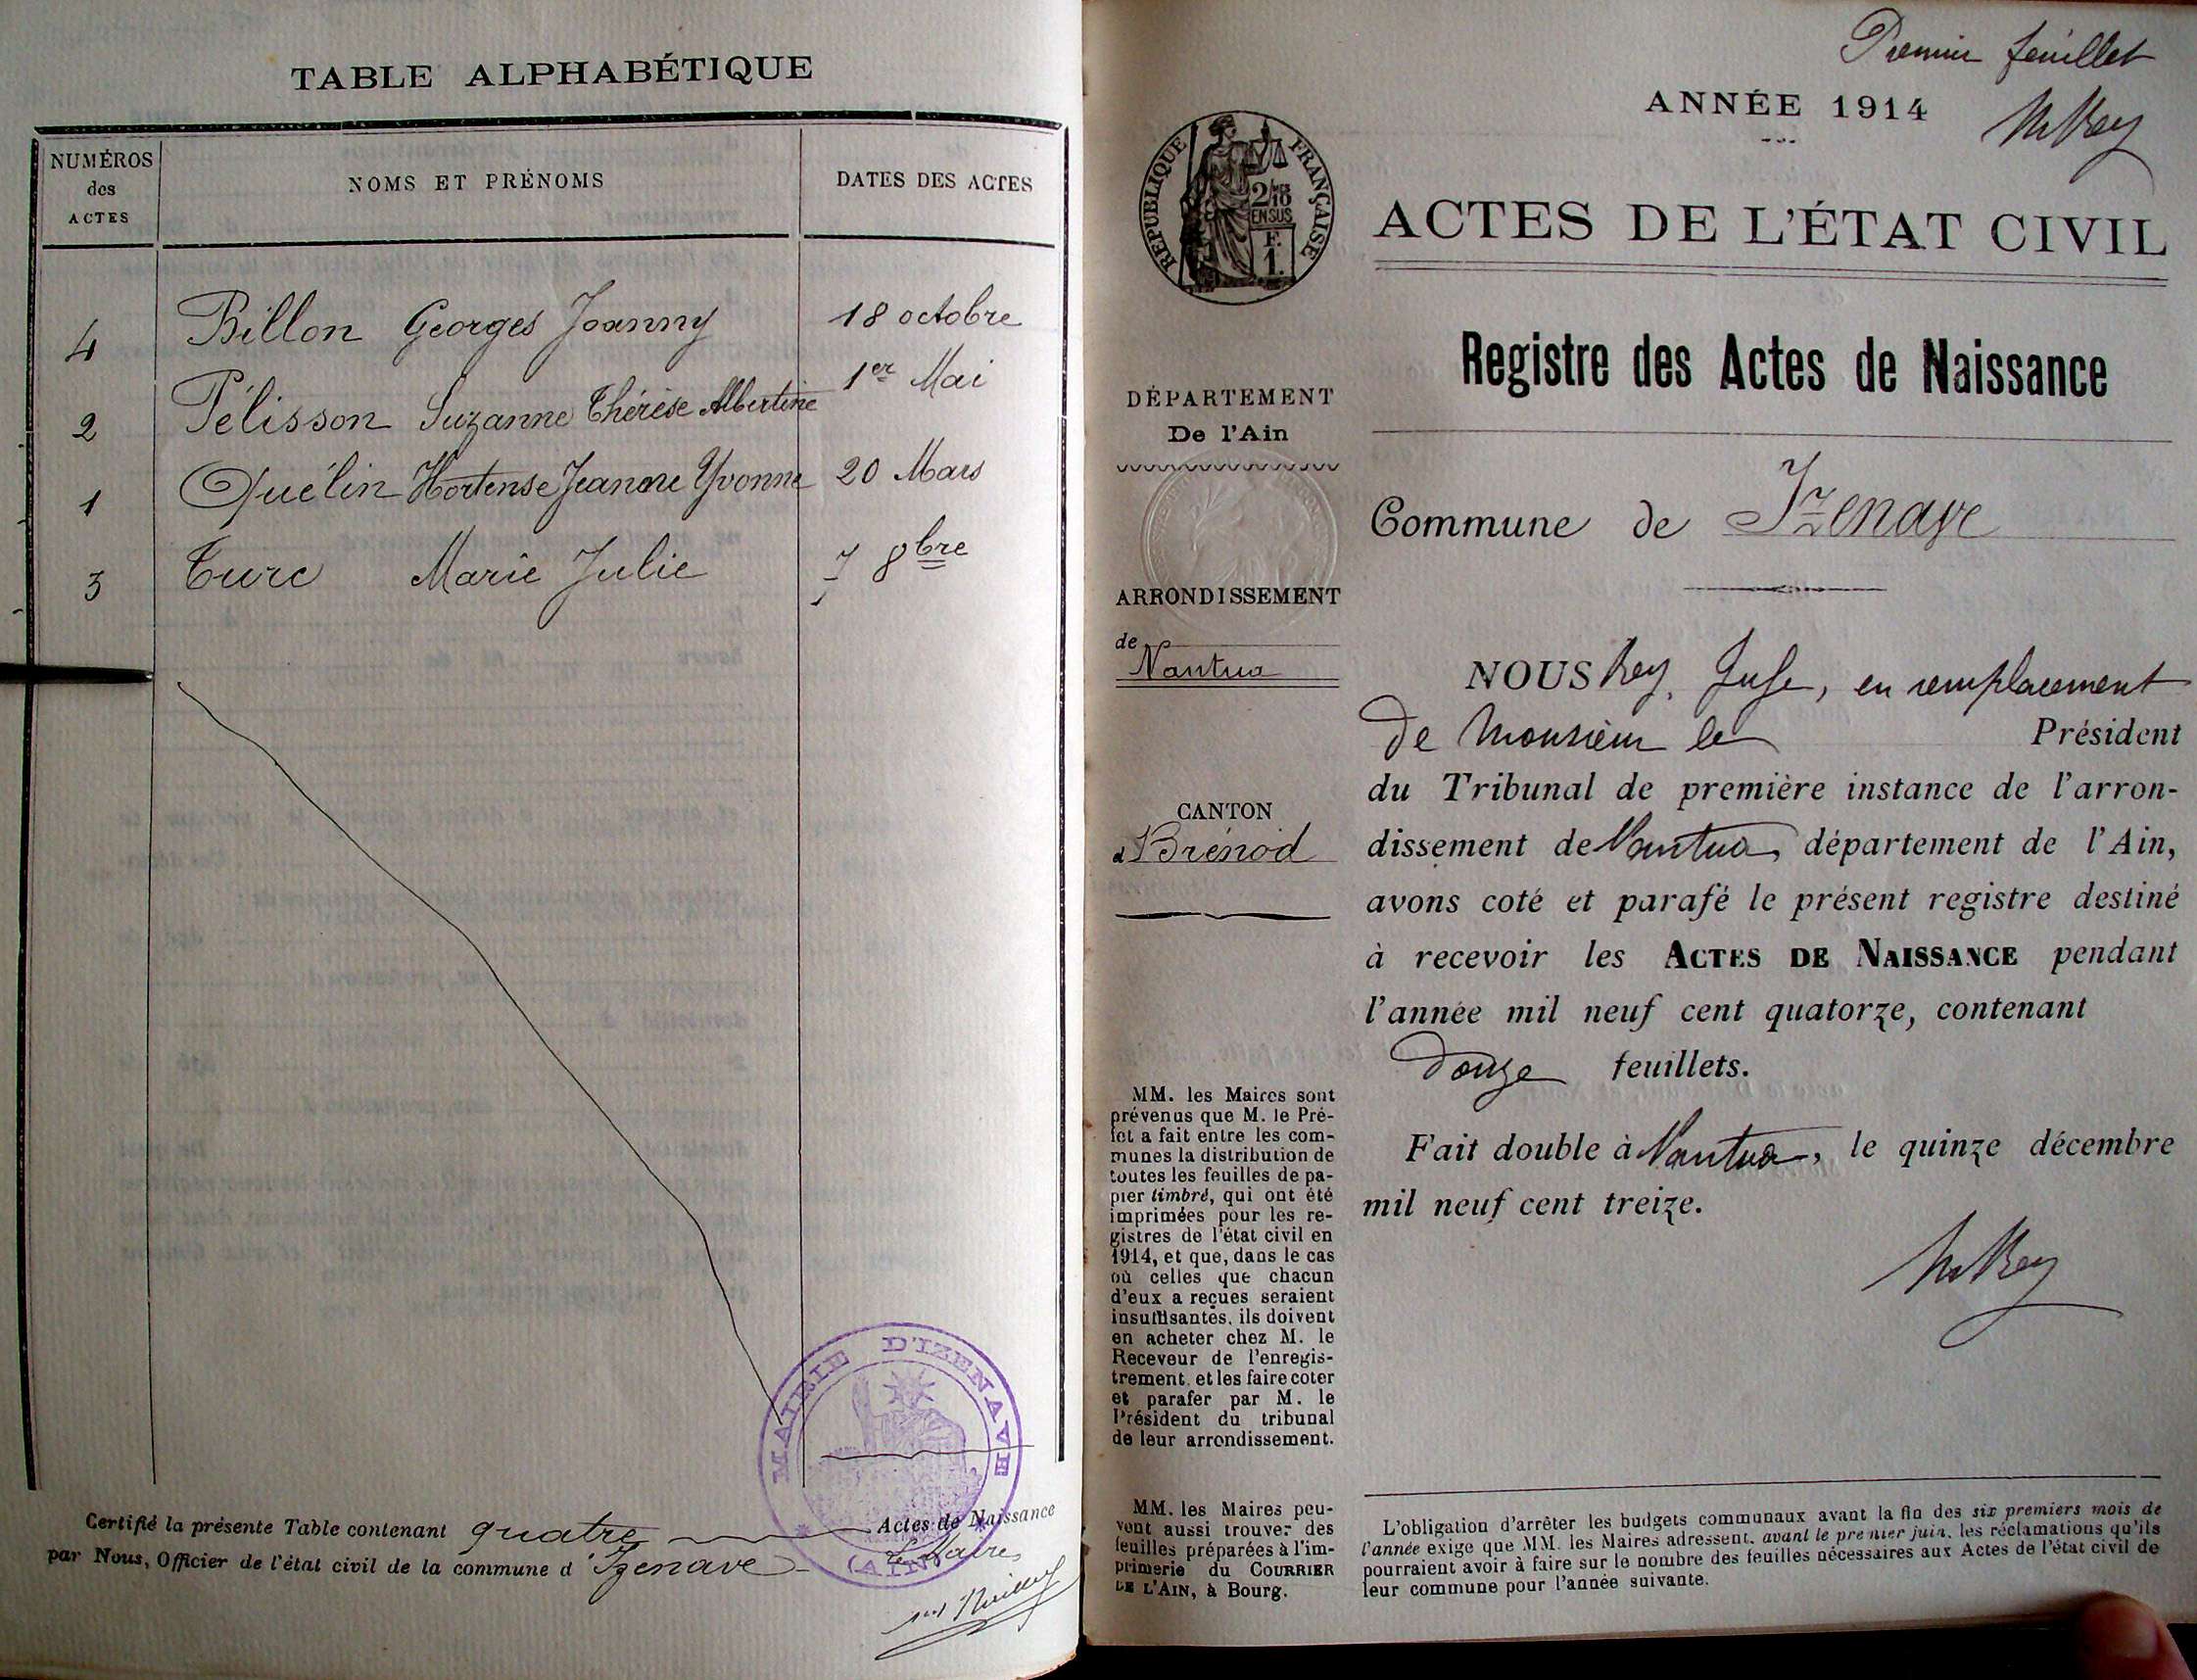 TABLE ALPHABÉTIQUE
NUMÉROS
des
ACTES
NOMS ET PRÉNOMS
DATES DES ACTES
4 Billon Georges Joanny 18 octobre
2 Pélisson Suzanne Thérèse Albertine 1er Mai
1 Quélin Hortense Jeanne Yvonne 20 Mars
3 Turc Marie Julie 7 8bre
MAIRIE D'IZENAVE
(AIN)
Certifié la présente Table contenant quatre Actes de Naissance
par Nous, Officier de l'état civil de la commune d'Izenave
Le Maire,
Premier feuillet
ANNÉE 1914
Rey
RÉPUBLIQUE FRANÇAISE
2/10
EN SUS
F.
1.
ACTES DE L'ÉTAT CIVIL
Registre des Actes de Naissance
DÉPARTEMENT
De l'Ain
Commune de Izenave
ARRONDISSEMENT
de
Nantua
CANTON
d Brénod
NOUS Rey, Juge, en remplacement
de Monsieur le Président
du Tribunal de première instance de l'arron-
dissement de Nantua, département de l'Ain,
avons coté et parafé le présent registre destiné
à recevoir les ACTES DE NAISSANCE pendant
l'année mil neuf cent quatorze, contenant
douze feuillets.
Fait double à Nantua, le quinze décembre
mil neuf cent treize.
Rey
MM. les Maires sont
prévenus que M. le Pré-
fet a fait entre les com-
munes la distribution de
toutes les feuilles de pa-
pier timbré, qui ont été
imprimées pour les re-
gistres de l'état civil en
1914, et que, dans le cas
où celles que chacun
d'eux a reçues seraient
insuffisantes, ils doivent
en acheter chez M. le
Receveur de l'enregis-
trement, et les faire coter
et parafer par M. le
Président du tribunal
de leur arrondissement.
MM. les Maires peu-
vent aussi trouver des
feuilles préparées à l'im-
primerie du COURRIER
DE L'AIN, à Bourg.
L'obligation d'arrêter les budgets communaux avant la fin des six premiers mois de
l'année exige que MM. les Maires adressent, avant le premier juin, les réclamations qu'ils
pourraient avoir à faire sur le nombre des feuilles nécessaires aux Actes de l'état civil de
leur commune pour l'année suivante.